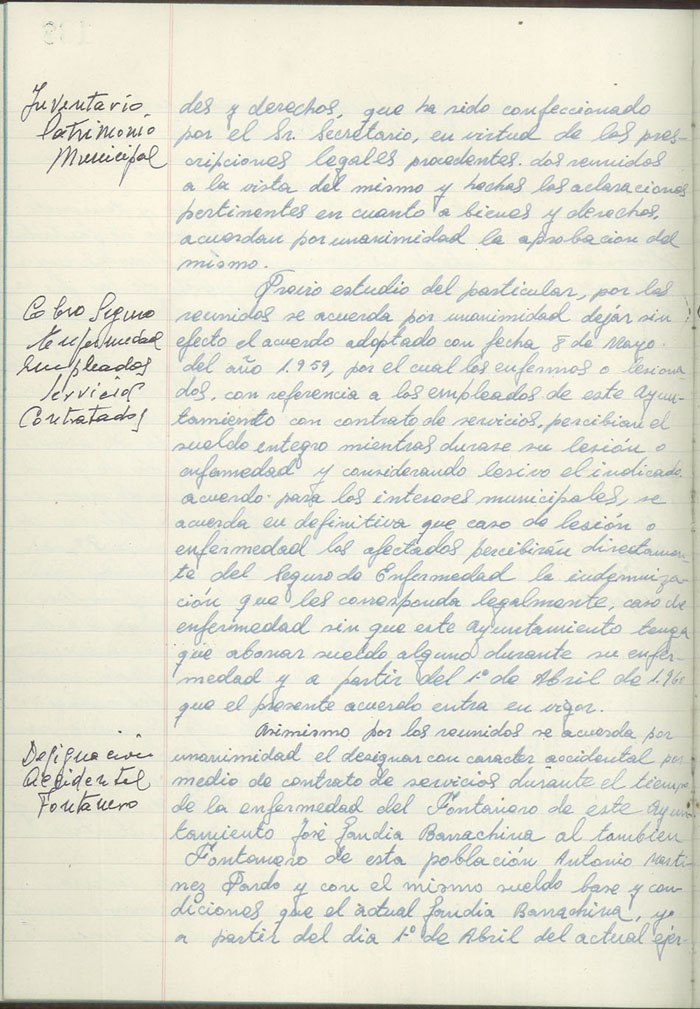 Inventario
Patrimonio
Municipal
des y derechos, que ha sido confeccionado
por el Sr. Secretario, en virtud de las pres-
cripciones legales procedentes. Los reunidos
a la vista del mismo y hechas las aclaraciones
pertinentes en cuanto a bienes y derechos,
acuerdan por unanimidad la aprobacion del
mismo.
Cobro Seguro
Enfermedad
Empleados
Servicios
Contratados
Previo estudio del particular, por los
reunidos se acuerda por unanimidad dejar sin
efecto el acuerdo adoptado con fecha 8 de Mayo
del año 1.959, por el cual los enfermos o lesiona
dos, con referencia a los empleados de este Ayun-
tamiento con contrato de servicios, percibian el
sueldo integro mientras durase su lesión o
enfermedad y considerando lesivo el indicado
acuerdo para los intereses municipales, se
acuerda en definitiva que caso de lesión o
enfermedad los afectados percibirán directamen-
te del Seguro de Enfermedad la indemniza-
ción que les corresponda legalmente, caso de
enfermedad sin que este Ayuntamiento tenga
que abonar sueldo alguno durante su enfer-
medad y a partir del 1º de Abril de 1.960
que el presente acuerdo entra en vigor.
Designación
Accidental
Fontanero
Asimismo por los reunidos se acuerda por
unanimidad el designar con caracter accidental por
medio de contrato de servicios durante el tiempo
de la enfermedad del Fontanero de este Ayun-
tamiento José Gandia Barrachina al tambien
Fontanero de esta población Antonio Marti-
nez Pardo y con el mismo sueldo base y con-
diciones que el actual Gandia Barrachina, y
a partir del dia 1º de Abril del actual ejer-